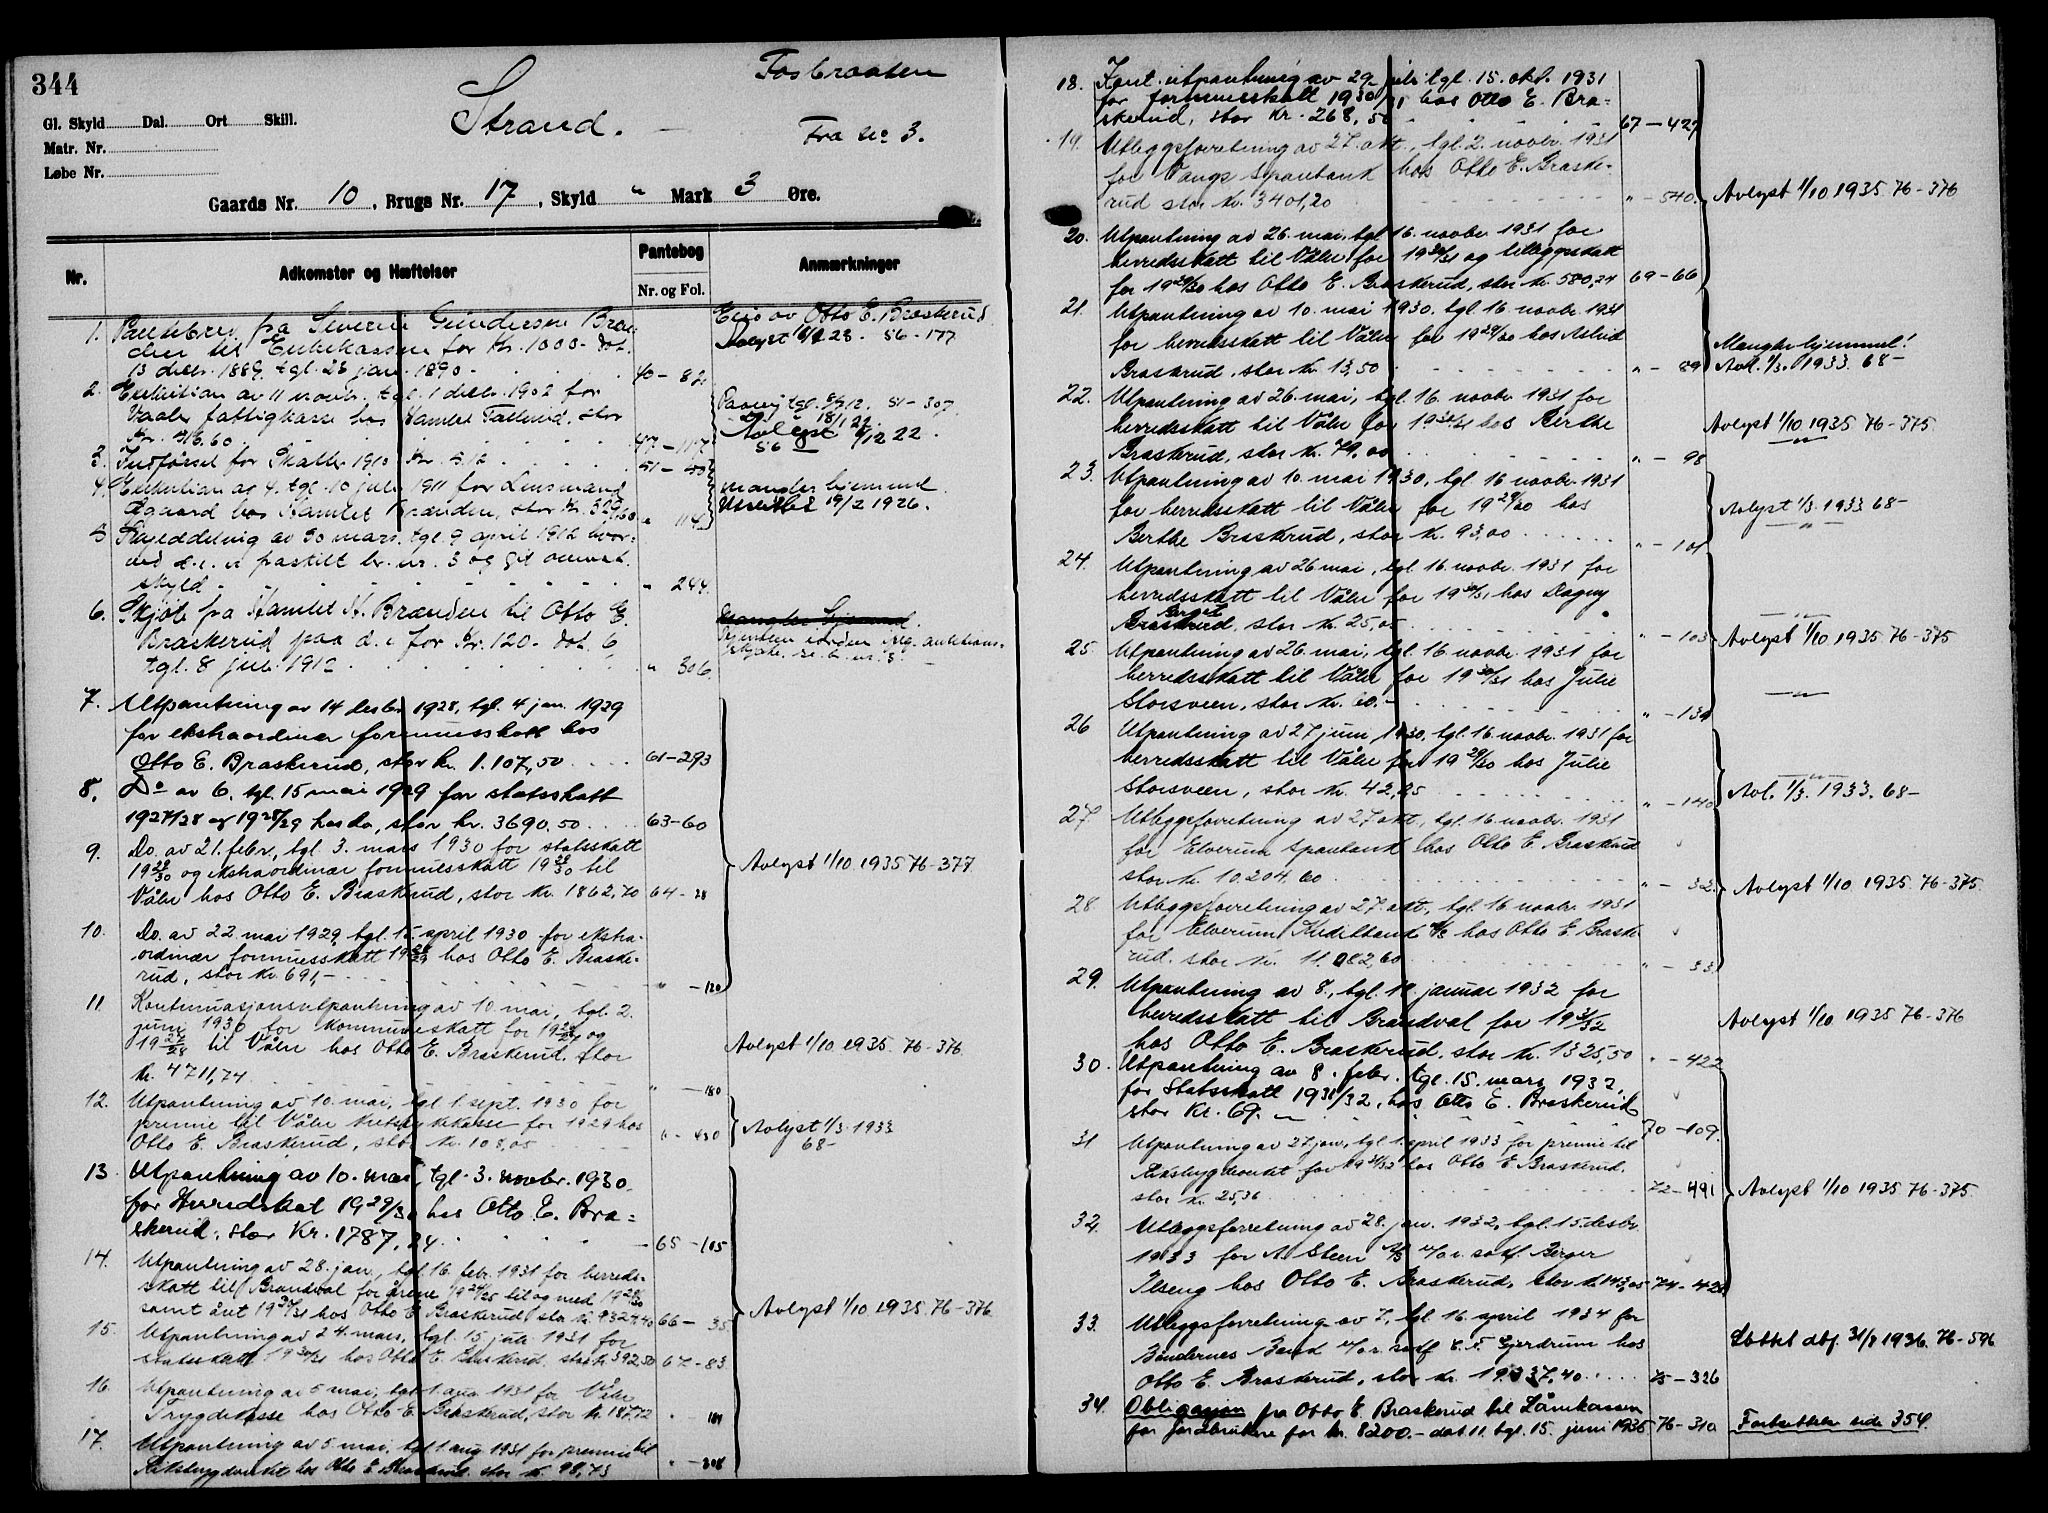 344
Fosbraaten
Strand.
Fra no 3.
Gl. Skyld Dal. Ort Skill.
Matr. Nr.
Løbe Nr.
Gaards Nr. 10, Brugs Nr. 17, Skyld " Mark 3 Øre.
Nr.
Adkomster og Hæftelser
Pantebog
Nr. og Fol.
Anmærkninger
1. Pantebrev fra Severin Gundersen Bræn-
den til Enkekassen for Kr. 1000- dat.
13 decbr. 1889, tgl. 23 jan. 1890 40 - 82
Eies av Otto E. Braskerud
Avlyst 28. 56-177
2. Exekution av 11 novbr. tgl. 1 decbr. 1902 for
Vaaler fattigkasse hos Hamlet stor
Kr. 60 47 - 117
tgl. 12. 51-307
Avlyst 12 22.
56
3. Indførsel for Skatter 1910 Kr. 8.12 51 -
4. Exekution av 4. tgl. 10 juli 1911 for Lensmand
Ågaard hos Hamlet Brænden, stor Kr. 329,60 " 114
mangler hjemmel
Utslettet 19/2 1926.
5 Skylddeling av 30 mars, tgl. 9 april 1912 hvor-
ved d.e. er fraskilt br. nr. 3 og git ovennt.
skyld " 244.
6. Skjøte fra Hamlet H. Brænden til Otto E.
Braskerud paa d.e. for Kr. 120- dat. 6
tgl. 8 juli 1912 " 306.
mangler Hjemmel.
7. Utpantning av 14 desbr 1928, tgl. 4 jan 1929
for ekstraordinær formuesskatt hos
Otto E. Braskerud, stor kr. 1.107,50 61-293
8. Do av 6. tgl. 15 mai 1929 for statsskatt
1927/28 og 1928/29 hos do, stor kr. 3690.50 63-60
9. Do. av 21. febr, tgl. 3. mars 1930 for statsskatt
1929/30 og ekstraordinær formuesskatt 1929/30 til
Våler hos Otto E. Braskerud, stor kr. 1862,70 64 - 28
Avlyst 1/10 1935 76-377
10. Do. av 22 mai 1929, tgl. 15 april 1930 for ekstra-
ordinær formuesskatt 1928/29 hos Otto E. Braske-
rud, stor kr. 691,- " - 120
11. Kontinuasjonsutpantning av 10. mai, tgl. 2.
juni 1930 for kommuneskatt for og
1927/28 til Våler hos Otto E. Braskerud, stor
kr. 4711,74 " - 180
Avlyst 1/10. 1935. 76-376
12. Utpantning av 10. mai, tgl 1. sept. 1930 for
premie til Våler kretssykekasse for 1929 hos
Otto E. Braskerud, stor kr. 108,05 " - 430
Avlyst 1/3 1933
68-
13. Utpantning av 10. mai, tgl. 3. novbr. 1930
for Herredskat 1929/30 hos Otto E. Bra=
skerud, stor Kr. 1787,24 65 - 105
14. Utpantning av 28. jan, tgl. 16. febr. 1931 for herreds-
skatt til Brandval for årene 1924/25 til og med 1929/30
samt året 1930/31 hos Otto E Braskerud, stor kr. 9327,40 66 - 35
15. Utpantning av 24. mars, tgl. 15 juli 1931 for
statsskatt 1930/31 hos Otto E. Braskerud, stor kr 392,50 67 - 83
Avlyst 1/10 1935. 76-376
16. Utpantning av 5 mai, tgl. 1. aug 1931 for Våler
Trygdekasse hos Otto E. Braskerud, stor kr 187,72 "
17. Utpantning av 5 mai, tgl 1. aug 1931 for premie til
Rikstrygdeverket hos Otto E Braskerud stor kr. 98,73 " - 208
18. Kont. utpantning av 29 juli tgl. 15. okt. 1931
for formuesskatt 1930/31 hos Otto E. Bra=
skerud, stor Kr. 268,50 67 - 427
19. Utleggsforretning av 27. okt., tgl. 2. novbr. 1931
for Vangs sparebank hos Otto E. Braske-
rud stor kr. 3401,20 " - 540.
Avlyst 1/10 1935. 76-376
20. Utpantning av 26. mai, tgl 16. novbr 1931 for
herredsskatt til Våler for 1930/31 og tilleggsskatt
for 1929/30 hos Otto E. Braskerud, stor kr. 580,24 69 - 66
21. Utpantning av 10. mai 1930, tgl 16. novbr. 1931
for herredsskatt til Våler for 1929/30 hos Astrid
Braskrud, stor kr. 13,50 " - 89
Mangler hjemmel!
Avl. 1/3. 1933. 68-
22. Utpantning av 26. mai, tgl. 16. novbr. 1931 for
herredsskatt til Våler for 1930/31 hos Berthe
Braskrud, stor kr. 79,00 " - 98
Avlyst 1/10 1935 76-375
—"—
23. Utpantning av 10. mai 1930, tgl 16 novbr 1931
for herredsskatt til Våler for 1929/30 hos
Berthe Braskrud, stor kr. 93,00 " - 101
Avlyst 1/3. 1933 68-
—"—
24. Utpantning av 26 mai, tgl 16. novbr. 1931 for
herredsskatt til Våler for 1930/31 hos Dagny
Berget
Braskrud, stor kr. 25,05 " - 103
—"—
Avlyst 1/10. 1935 76-375
25. Utpantning av 26. mai, tgl. 16. novbr. 1931 for
herredsskatt til Våler for 1930/31 hos Julie
Storsveen, stor kr. 20.- " - 139
—"—
26 Utpantning av 27 juni 1930, tgl. 16. novbr. 1931 for
herredsskatt til Våler for 1929/30 hos Julie
Storsveen, stor kr. 42,25 " - 140
—"—
Avl. 1/3. 1933. 68-
27. Utleggsforretning av 27 okt, tgl. 16. novbr. 1931
for Elverum sparebank hos Otto E. Braskrud
stor kr. 10.204.60 " - 32.
Avlyst 1/10. 1935. 76-375
28. Utleggsforretning av 27. okt., tgl. 16. novbr. 1931
for Elverum Kreditbank A/S hos Otto E Braske
rud. stor kr. 11.082,60 " - 33
29. Utpantning av 8., tgl. 19. januar 1932 for
herredsskatt til Brandval for 1931/32
hos Otto E. Braskerud, stor kr. 1325,50 " - 422
Avlyst 1/10. 1935 76-376
30. Utpantning av 8. febr. tgl. 15. mars 1932,
for Statsskatt 1931/32, hos Otto E. Braskerud
stor Kr. 69.- 70 - 109.
31 Utpantning av 27. jan, tgl. 1. april 1933 for premie til
Rikstrygdeverket for 1931/32 hos Otto E Braskerud.
stor kr. 25,36 72 - 491
Avlyst 1/10 1935 76-375.
32. Utleggsforretning av 28. jan. 1932, tgl. 15. desbr
1933 for A. Steen A/S v/o.r.sakf Berger
Ilseng hos Otto E. Braskerud, stor kr 143,05 74 - 428
33. Utleggsforretning av 7., tgl 16. april 1934 for
Bøndernes Bank v/o.r. sakf C. F. Gjerdrum hos
Otto E. Braskerud, stor kr. 19337,40 75 - 326
Slettet dbf. 31/8 1936. 76-596
34. Obligasjon fra Otto E Braskerud til Lånekassen
for jordbrukere for kr. 8200.- dat 11. tgl. 15. juni 1935 76-310
Fortsettelse side 354.